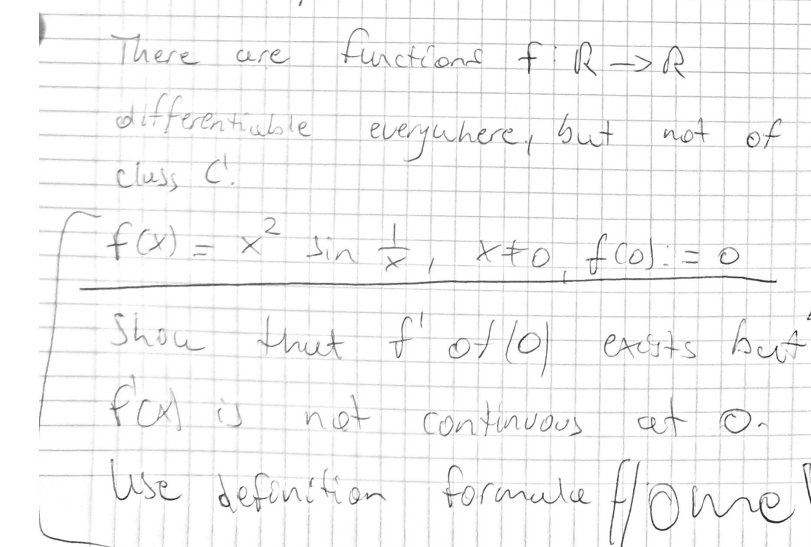 There are functions f: ℝ → ℝ
differentiable everywhere, but not of
class C¹.
f(x) = x² sin 1/x, x≠0, f(0) := 0
Show that f' of (0) exists but
f'(x) is not continuous at 0.
Use definition formula